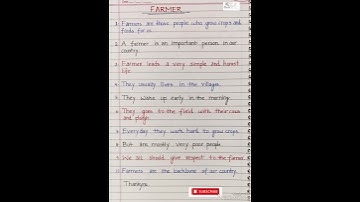 FARMER
1. Farmers are those people who grow crops and
foods for us.
2. A farmer is an important person in our
country.
3. Farmer leads a very simple and honest
life.
4. They usually lives in the villages.
5. They wake up early in the morning.
6. They goes to the field with their cows
and plough.
7. Everyday they work hard to grow crops.
8. But are mostly very poor people.
9. We all should give respect to the farmer.
10. Farmers are the backbone of our country.
Thankyou
SUBSCRIBE